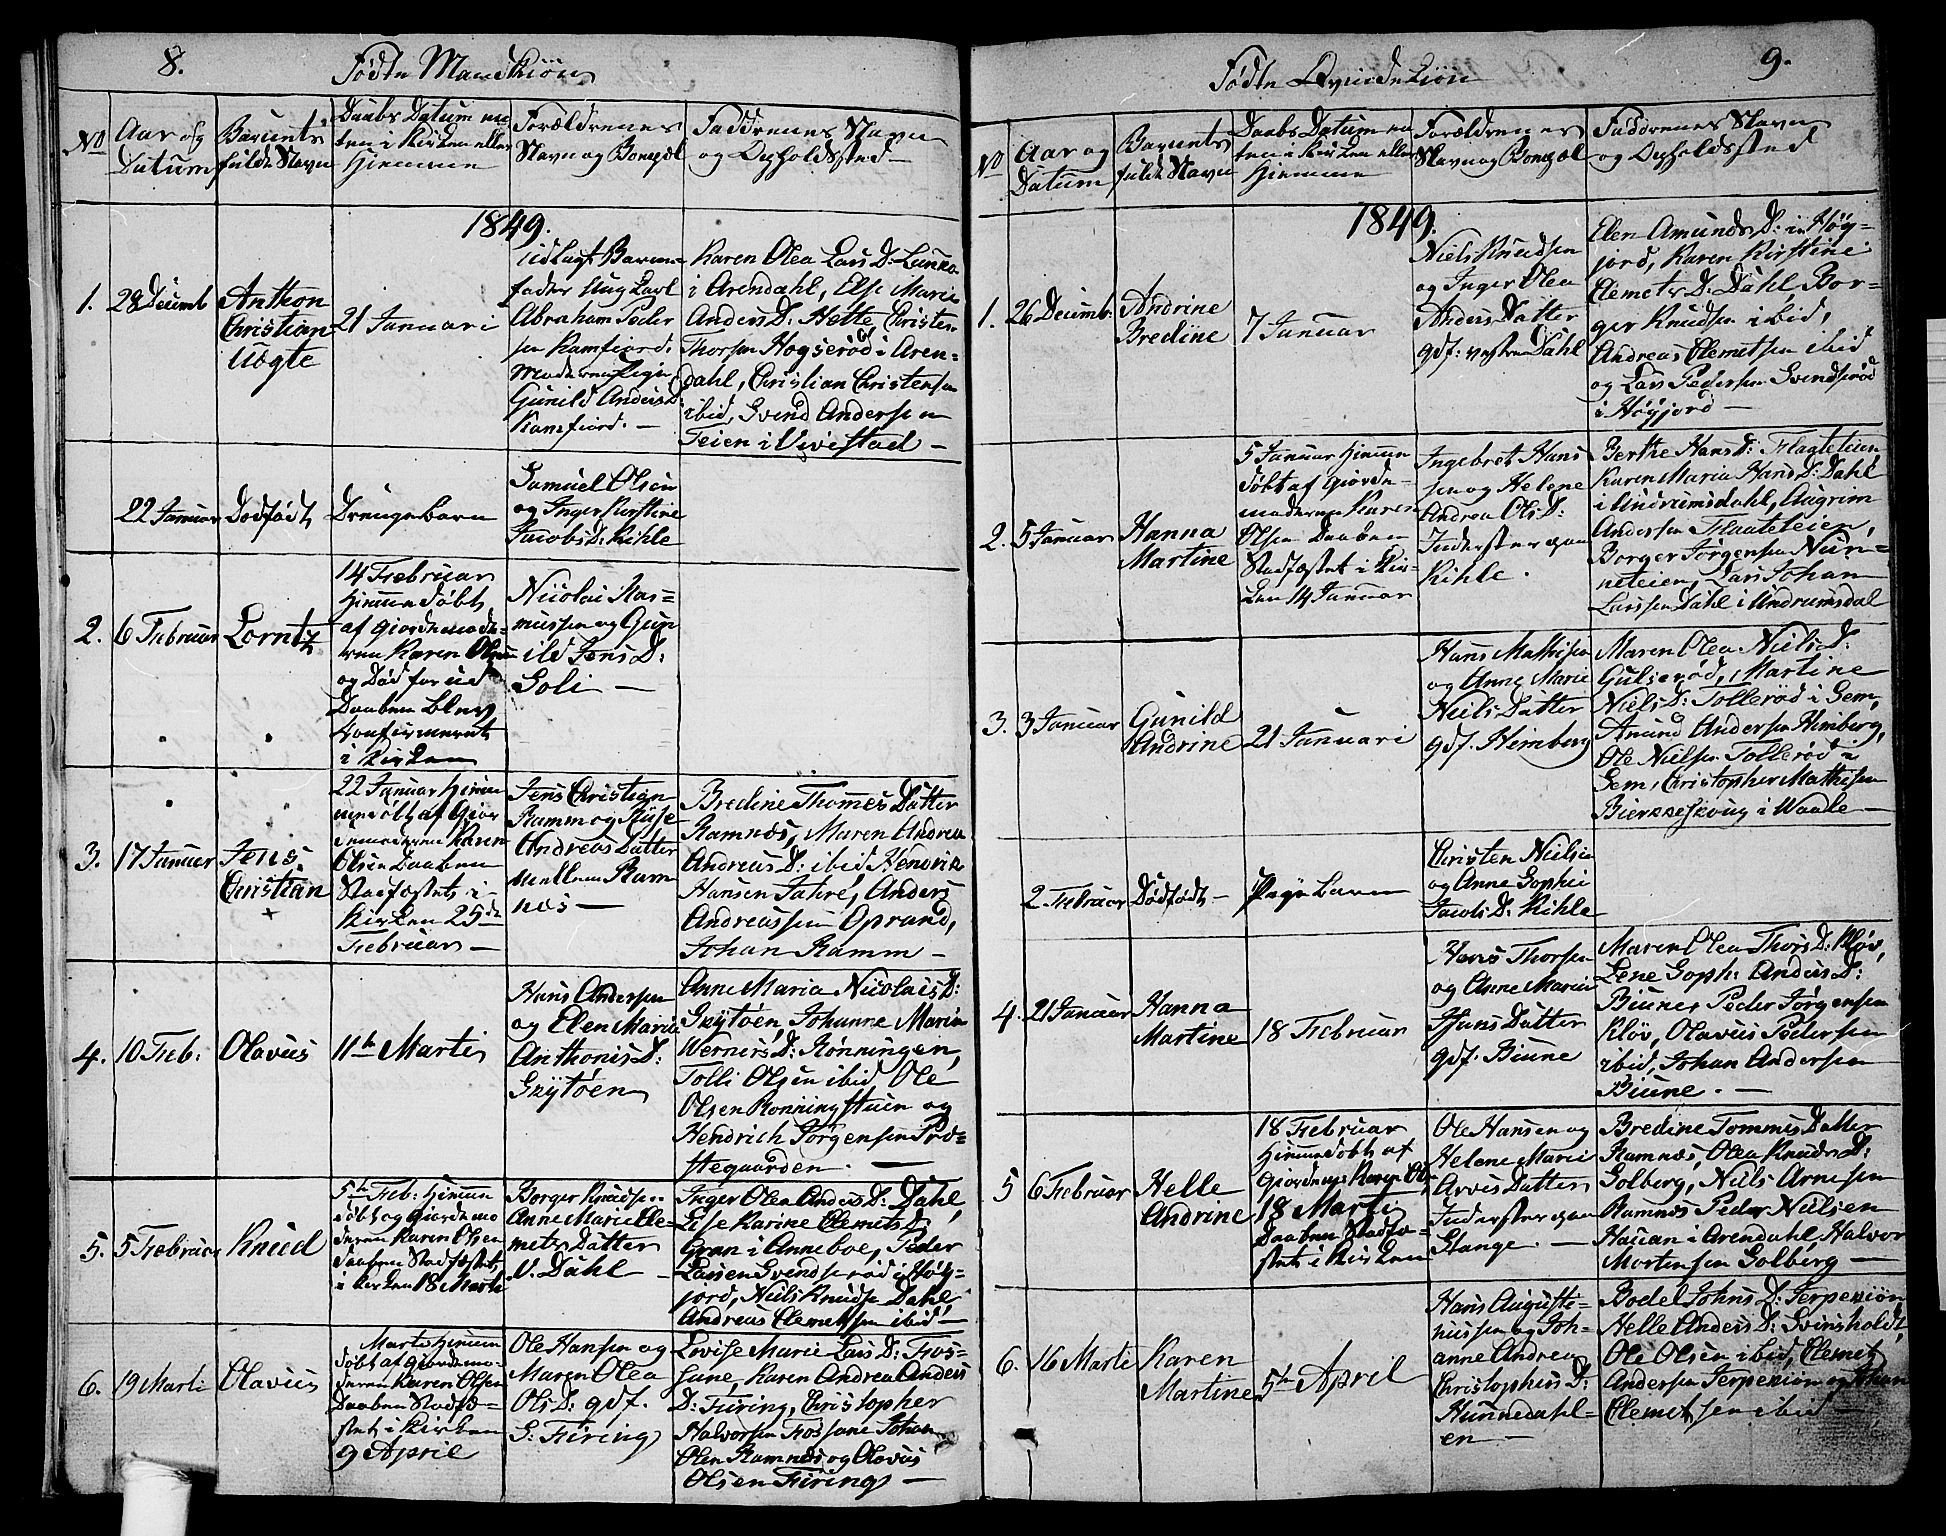 8.
Fødte Mandkiøn
No
Aar og
Datum
Barnets
fulde Navn
Daabs Datum en
ten i Kirken eller
Hjemme
Forældrenes
Navn og Bopæl
Faddrenes Navn
og Opholdssted
1849.
1.
28 Decemb
Anthon
Christian
Uægte
21 Januari
Udlagt Barne
fader Ung Carl
Abraham Peder
sen Ramfiord.
Moderen Pige
Gunild Anders D:
Ramfiord. —
Karen Olea Lars D:
i Arendahl, Else Marie
Anders D: Hette, Christen
Thorsen Hogserød i Aren=
dahl, Christian Christensen
ibid, Svend Andersen
Teien i Vivestad —
22 Januar
Dødfødt
Drengebarn
Samuel Olsen
og Inger Kirstine
Jacobs D: Kihle
2.
6 Februar
Lorntz
14 Februar
Hjemme døbt
af Giordemode=
ren Karen Olsen
og Død forend
Daaben blev
Konfirmeret
i Kirken
Nicolai Ras=
mussen og Gun
ild Jens D:
Soli —
3.
17 Januar
Jens
Christian
+
22 Januar Hjem
me døbt af Gior
demoderen Karen
Olsen Daaben
Stadfæstet i
Kirken 25de
Februar —
Jens Christian
Ramm og Elise
Andreas Datter
Mellem Ram
næs —
Bredine Thomes Datter
Ramnæs, Maren Andrea
Andreas D: ibid Hendrik
Hansen Jahre, Anders
Andreassen Oprand,
Johan Ramm —
4.
10 Feb:
Olavus
11te Marti
Hans Andersen
og Elen Maria
Anthonis D:
Grytøen
Anne Maria Nicolais D:
Grytøen, Johanne Maria
Werners D: Rønningen,
Tolli Olsen ibid, Ole
Olsen Rønningstuen og
Hendrich Jørgensen Præ=
stegaarden. —
5.
5 Februar
Knud
5te Feb: Hjemme
døbt og Giordemo
deren Karen Olsen
Daaben Stadfæstet
i Kirken 18 Marti
Borger Knudsen
Anne Marie Cle=
mets Datter
V. Dahl —
Inger Olea Anders D: Dahl,
Lise Karine Clemets D
Gran i Anneboe, Peder
Larsen Svendsrød i Høy=
jord, Niels Knudsen Dahl
Andreas Clemetsen ibid —
6.
19 Marti
Olavus
Marti Hjemme
døbt af Giordemo=
deren Karen Olsen
Daaben Stadfæ=
stet i Kirken
9 April
Ole Hansen og
Maren Olea
Ols D: gdf.
S: Firing
Lovise Marie Lars D: Fros=
sune, Karen Andrea Anders
D: Firing, Christopher
Halvorsen Fossane Johan
Olsen Ramnæs og Olavus
Olsen Firing —
9.
Fødte Qvindekiøn
No
Aar og
Datum
Barnets
fulde Navn
Daabs Datum en
ten i Kirken eller
Hjemme
Forældrenes
Navn og Bopæl
Faddrenes Navn
og Opholdssted
1849.
1.
26 Decemb.
Andrine
Bredine
7 Januar
Niels Knudsen
og Inger Olea
Anders Datter
gdf: vestre Dahl
Elen Amunds D: i Høy=
jord, Karen Kirstine
Clemets D: Dahl Bor=
ger Knudsen ibid,
Andreas Clemetsen ibid
og Lars Pedersen Svendsrød
i Høyjord —
2.
5 Januar
Hanna
Martine
5 Januar Hjemme
døbt af Giorde=
moderen Karen
Olsen Daaben
Stadfæstet i Kir=
ken 14 Januar
Ingebret Hans
sen og Helene
Andrea Ols D:
Inderster paa
Kihle.
Berthe Hans D: Flaateteien
Karen Maria Hans D: Dahl
i Undrumsdahl, Aagrim
Andersen Flaateteien,
Borger Jørgensen Nun=
neteien, Lars Johan
Larssen Dahl i Undrumsdal
3.
3 Januar
Gunild
Andrine
21 Januari
Hans Mathisen
og Anne Marie
Niels Datter
gdf. Himberg
Maren Olea Niels D:
Gulserød, Martine
Niels D: Tollerød i Sem,
Amund Andersen Himberg,
Ole Nielsen Tollerød i
Sem, Christopher Mathisen
Bierkeskoug i Waale —
2 Februar
Dødfødt —
Pigebarn
Christen Nielsen
og Anne Sophie
Jacobs D: Kihle
4.
21 Januar
Hanna
Martine
18 Februar
Hans Thorsen
og Anne Marie
Hans Datter
gdf. Biune
Maren Olea Thors D: Kløv,
Lene Soph: Anders D:
Biune, Peder Jørgensen
Kløv, Olavus Pedersen
ibid, Johan Andersen
Biune. —
5
6 Februar
Helle
Andrine
18 Februar
Hjemmedøbt af
Giordem: Karen Ols:
18 Marti
Daaben Stadfæ=
stet i Kirken
Ole Hansen og
Helene Marie
Arvis Datter
Inderster paa
Stange. —
Bredine Tommes Datter
Ramnæs, Olea Knuds D:
Solberg, Niels Arnesen
Ramnæs Peder Nielsen
Hauan i Arendahl, Halvor
Mortensen Solberg —
6.
16 Marti
Karen
Martine
5te April
Hans Auguste=
nussen og Joh=
anne Andrea
Christophers D:
Hunnedahl=
en —
Bodel Johns D: Jerpekiøn
Helle Anders D: Svinsholdt,
Ole Olsen ibid, Clemet
Andersen Jerpekiøn og Johan
Clemetsen ibid —